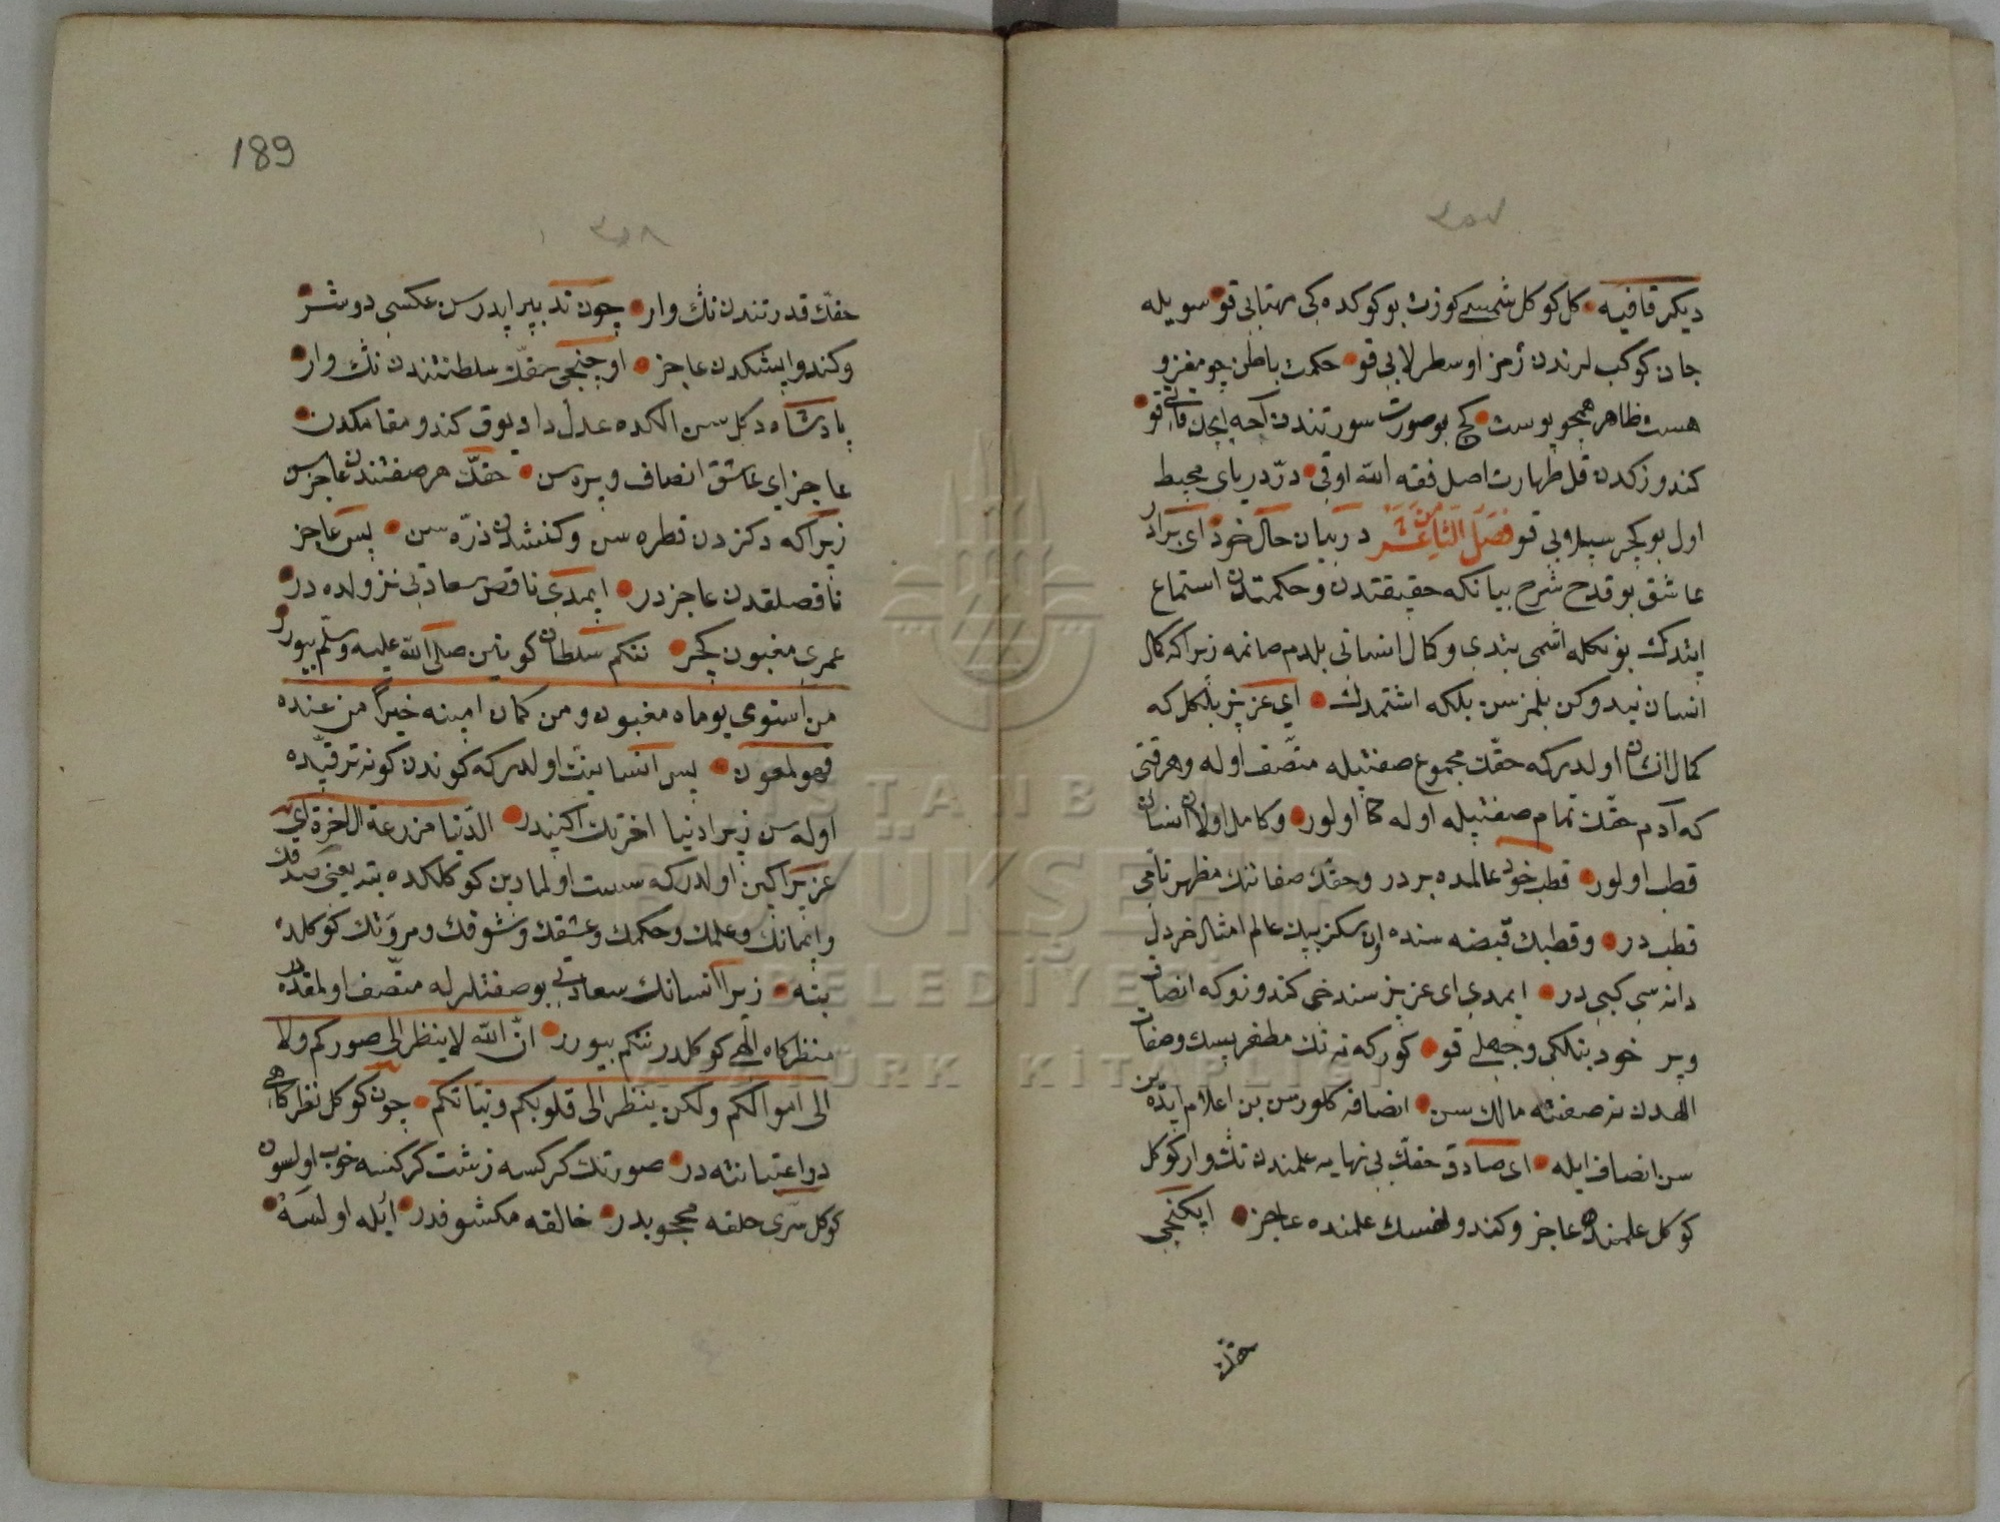 ٣٥٧
دیکر قافیه كل كوكل شمسی كوزت بو كوكده كی مهتابی قو سویله
جان كوكب لرندن رمز اوسطرلابی قو حكمت باطن چو مغز و
هست ظاهر همچو پوست كچ بو صورت سورتندن آچه ایچن قابی قو
كندوزكدن قل طهارت اصل فقه الله اوقی درّ دریای محیط
اول بو كچر سیلابی قو فصل الثامن عشر در بیان حال خود ای برادر
عاشق بو قدح شرح بیانكه حقیقتدن و حكمتدن استماع
ایتدك بونكله ایشمی بتدی و كمال انسانی بلدم صانمه زیراكه كمال
انسان نیدوكن بلمزسن بلكه اشتمدك ای عزیز بلكل كه
كمال انسان اولدركه حقّك مجموع صفتیله متّصف اوله و هر قنی
كه آدم حقّك تمام صفتیله اوله اولور و كامل اولان انسان
قطب اولور قطب خود عالمده بردر و حقّك صفاتنك مظهر تامی
قطبدر و قطبك قبضه سنده اون سكز بیك عالم امثال خردل
دانه سی كبی در ایمدی ای عزیز سندخی كندوزوكه انصاف
ویر خود بنلكی و جهلی قو كوركه نه نك مظهریسك و صفات
الهدن نه صفته مالك سن انصافه كلورسن بن اعلام ایدّه ین
سن انصاف ایله ای صادق حقّك بی نهایه علمندن نڭ وار كوكل
كوكل علمنده عاجز و كندو نفسك علمنده عاجز ایكنجی
حقّك
189
٣٥٨
حقّك قدرتندن نڭ وار چون تدبیر ایدرسن عكسی دوشر
و كندو ایشكدن عاجز اوچنجی حقّك سلطنتندن نڭ وار
پادشاه دكل سن الكده عدل داد یوق كندو مقامكدن
عاجز ای عاشق انصاف ویره سن حقّك هر صفتندن عاجزسن
زیراكه دكزدن قطره سن و كنشدن ذرّه سن پس عاجز
ناقصلقدن عاجزدر ایمدی ناقص سعادتی نزولده در
عمری مغبون كچر نتكم سلطان كونین صلی الله علیه وسلّم بیورر
من استوی یوماه مغبون و من كان امینه خیراً من عنده
فهو لمعون پس انسانیت اولدركه كوندن كونه ترقیّده
اوله سن زیرا دنیا اخرتك اكیندر الدّنیا مزرعة الاخرة ای
عزیز اكین اولدركه سست اولمادین كوكلكده بته یعنی صدقك
و ایمانك و علمك و حكمك و عشقك و شوقك و مروّتك كوكلده
بته زیرا انسانك سعادتی بو صفتلرله متّصف اولمقدر
منظركاه الهی كوكلدر نتكم بیورر انّ الله لا ینظر الی صوركم ولا
الی اموالكم ولكن ینظر الی قلوبكم و نیّاتكم چون كوكل نظركاهی
صورتك كركسه زشت كركسه خوب اولسون
كوكل سرّی خلقه محجوبدر خالقه مكشوفدر ایله اولسه